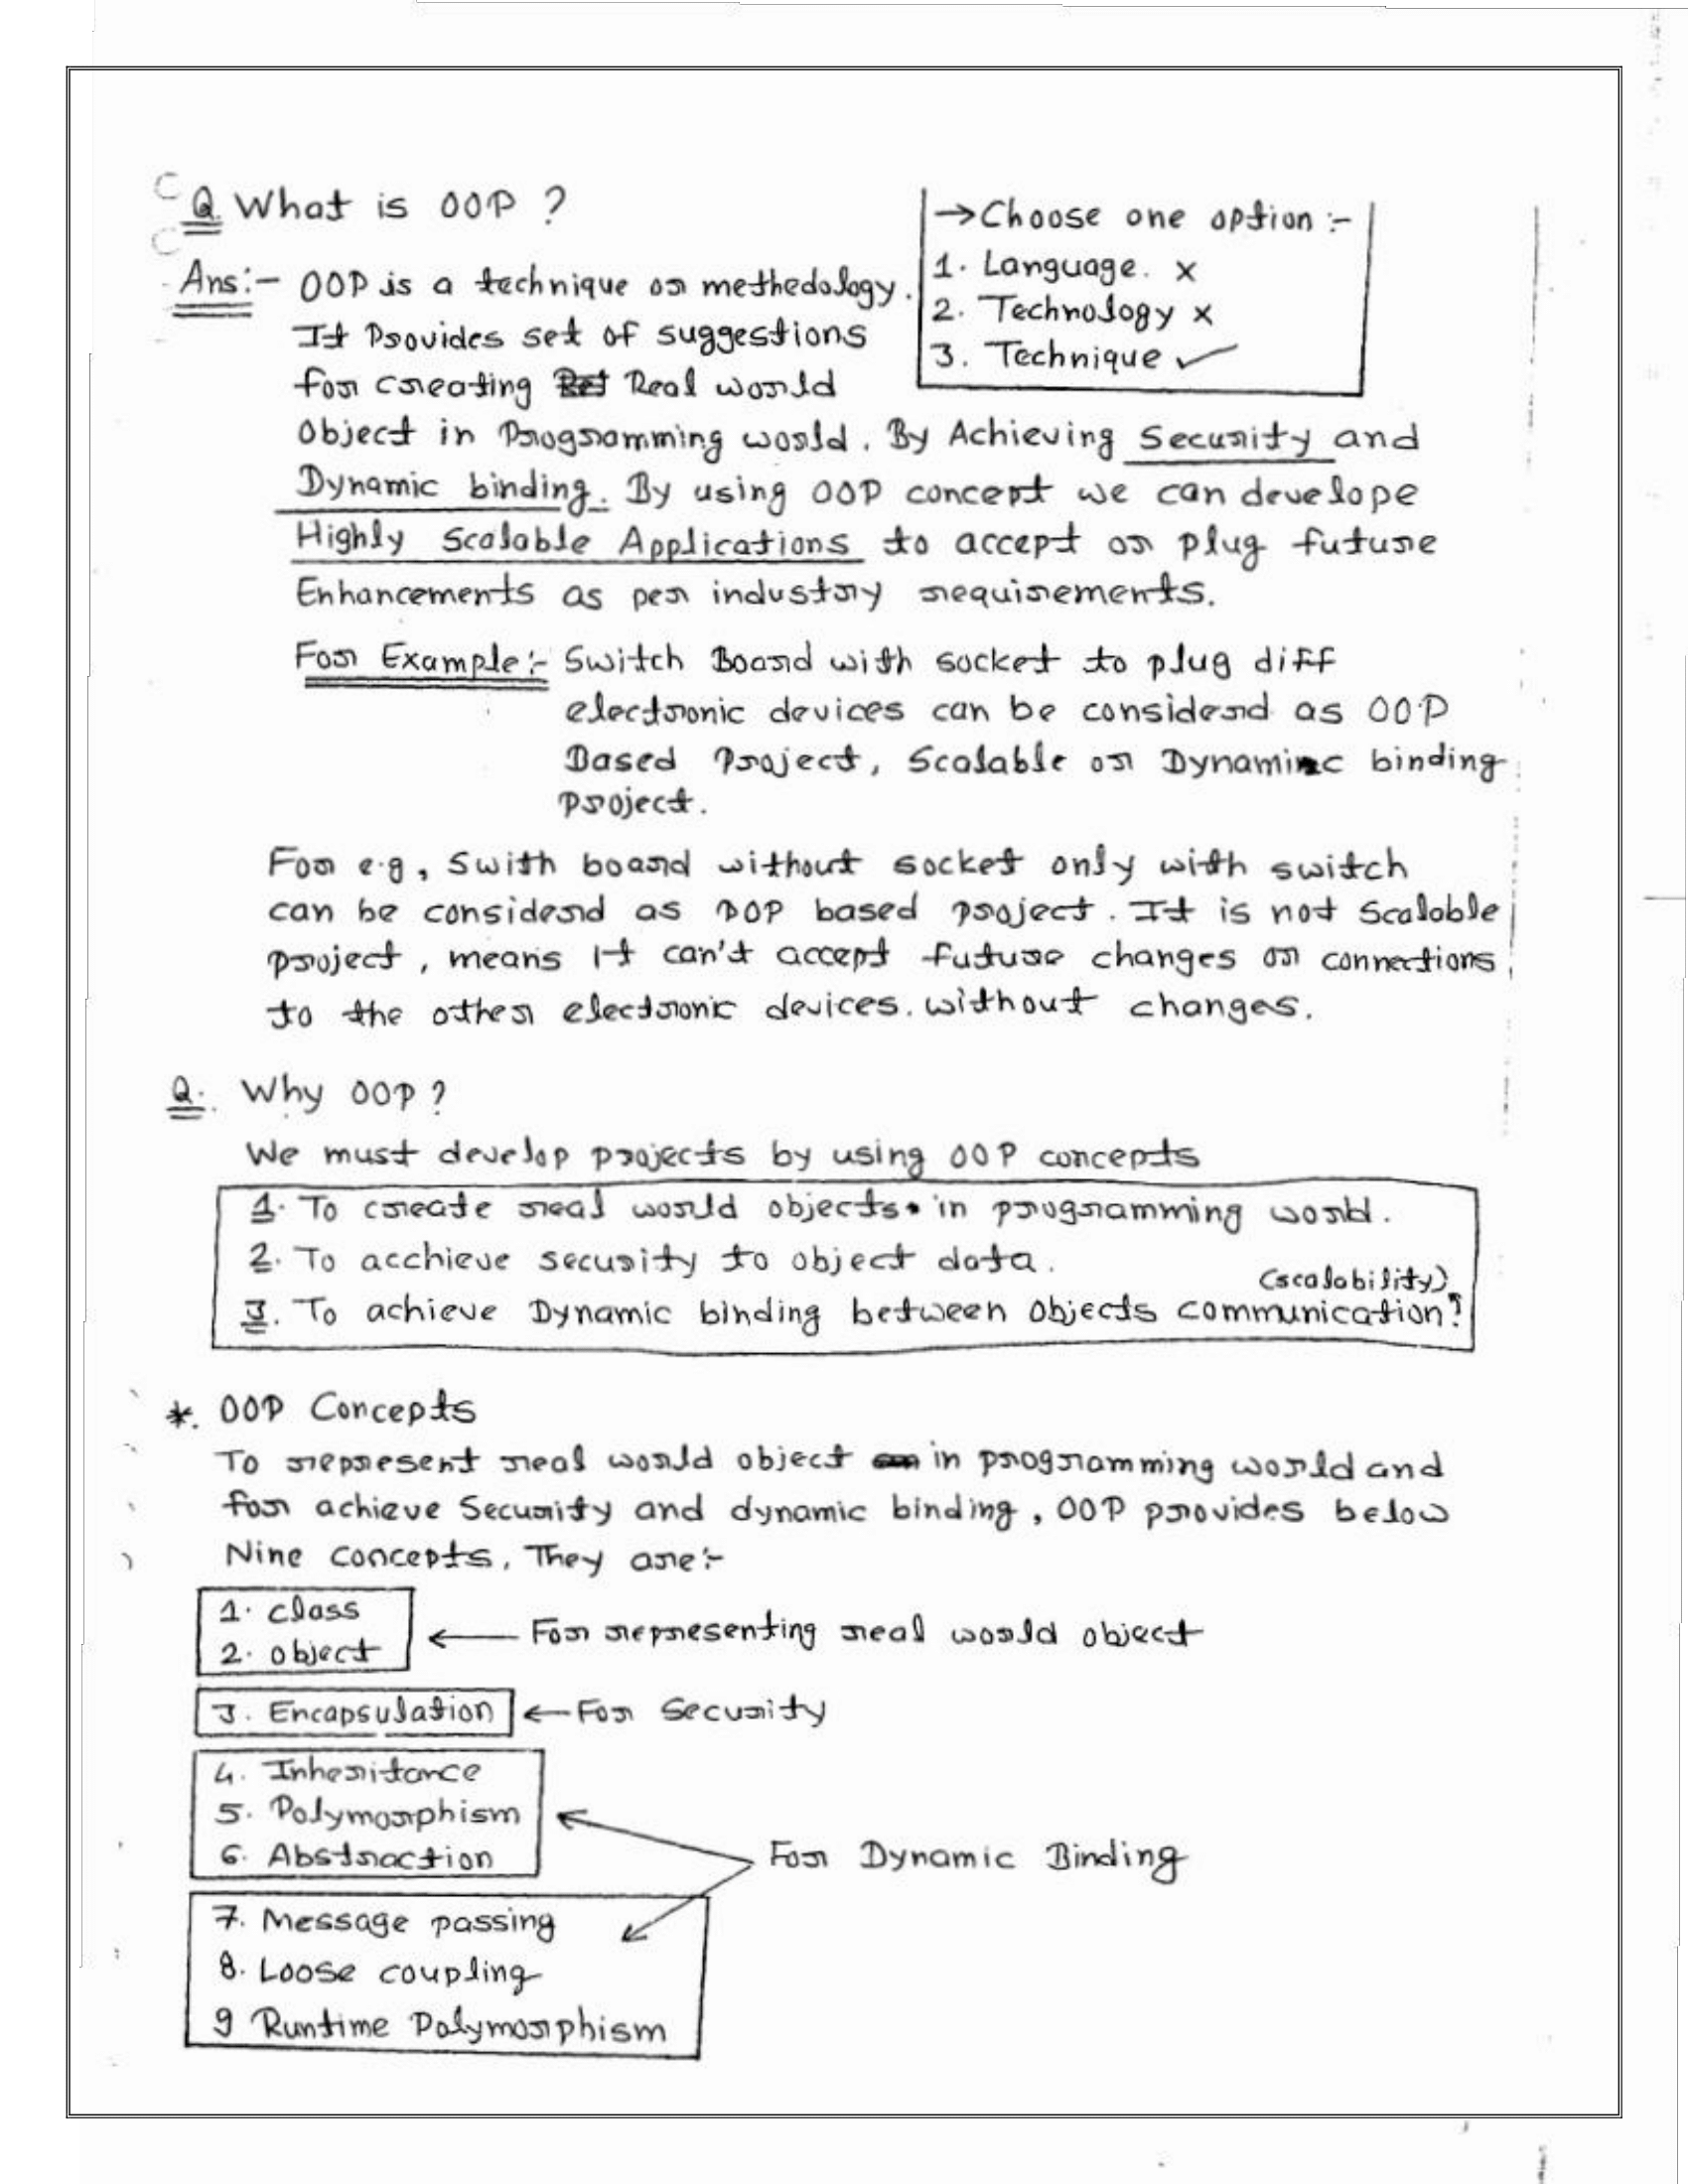 Q. What is OOP ?
→ Choose one option :-
1. Language. x
2. Technology x
3. Technique ✓
Ans:- OOP is a technique or methedology.
It Provides set of suggestions
for creating Real world
Object in Programming world. By Achieving Security and
Dynamic binding. By using OOP concept we can develope
Highly Scalable Applications to accept or plug future
Enhancements as per industry requirements.
For Example:- Switch Board with socket to plug diff
electronic devices can be considerd as OOP
Based Project, Scalable or Dynaminc binding
project.
For e.g, Swith board without socket only with switch
can be considerd as POP based project. It is not Scalable
project, means It can't accept future changes or connections
to the other electronic devices. without changes.
Q. Why OOP ?
We must develop projects by using OOP concepts
1. To create real world objects. in programming world.
2. To acchieve security to object data.
(scalability)
3. To achieve Dynamic binding between Objects communication?
*. OOP Concepts
To represent real world object in programming world and
for achieve Security and dynamic binding, OOP provides below
Nine concepts, They are:-
1. class
2. object
← For representing real world object
3. Encapsulation ← For Security
4. Inheritance
5. Polymorphism
6. Abstraction
For Dynamic Binding
7. Message passing
8. Loose coupling
9 Runtime Polymorphism